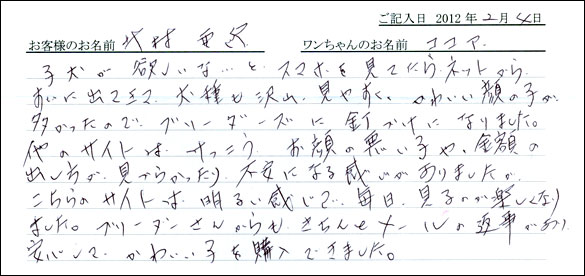 ご記入日 2012年2月4日
お客様のお名前 北村 ワンちゃんのお名前 ココア
子犬が欲しいな…と、スマホを見てたらネットから
あいに出てきて、犬種も沢山、見やすく、かわいい顔の子が
多かったので、ブリーダーズに釘づけになりました。
他のサイトは、けっこう、お顔の悪い子や、金額の
出し方が、見づらかったり、不安になる感じがありましたが、
こちらのサイトは、明るい感じで、毎日、見るのが楽しくなり
ました。ブリーダーさんからも、きちんとメールの返事があり、
安心して、かわいい子を購入できました。